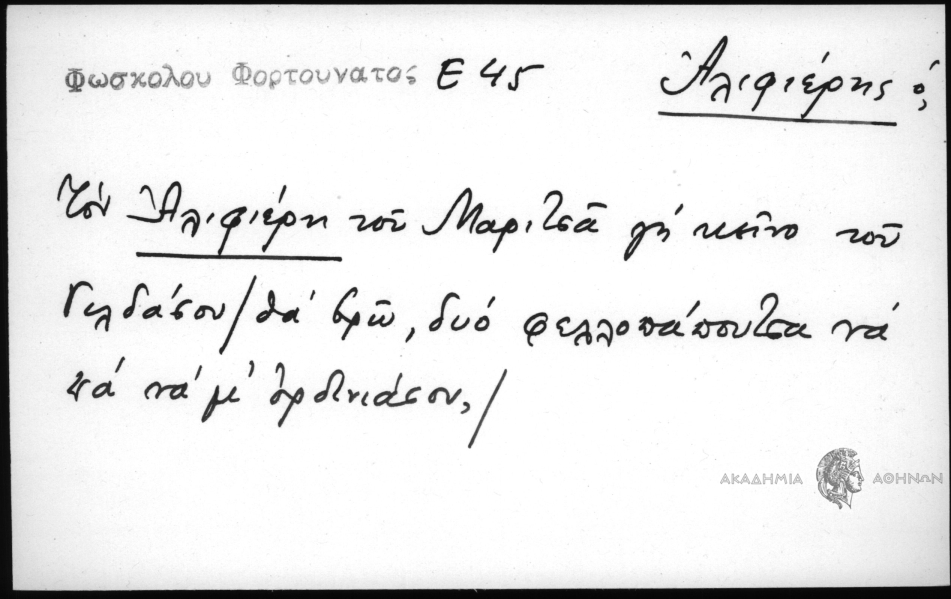 Φωσκολου Φορτουνατος Ε 45 Ἀλιφιέρης ὁ,
Τὸν Ἀλιφιέρη τοῦ Μαριτσᾶ γὴ κεῖνο τοῦ
Γιλδάσου/θά βρῶ, δυό φελλοπάπουτσα νά
πά νά μ' ὀρδινιάσου,/
ΑΚΑΔΗΜΙΑ ΑΘΗΝΩΝ